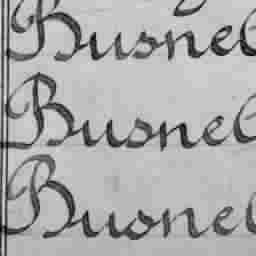 Busne
Busne
Busne